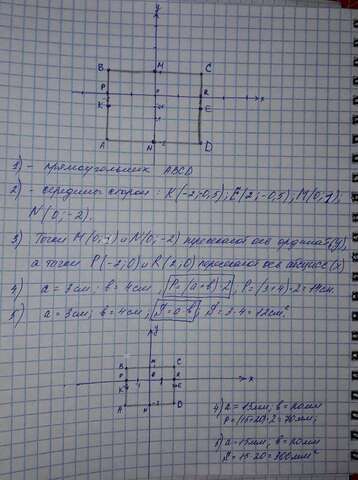 y
B M C
P R x
K E
A N D
1) - прямоугольник ABCD
2) - середины сторон: K(-2;-0,5); E(2;-0,5); M(0;1);
N(0;-2).
3) Точки M(0;1) и N(0;-2) пересекают ось ординат (y),
а точки P(-2;0) и R(2;0) пересекают ось абсцисс (x)
4) a = 3см; b = 4см; P=(a+b)·2; P=(3+4)·2=14см.
5) a = 3см; b = 4см; S=a·b; S=3·4=12см²
y
B M C
P R x
K E
A N D
4) a=15мм, b=20мм
P=(15+20)·2=70мм;
5) a=15мм, b=20мм
S=15·20=300мм²